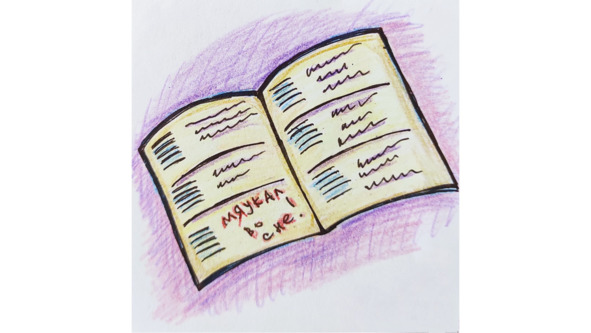 МЯУКАЛ
ВО
СНЕ.